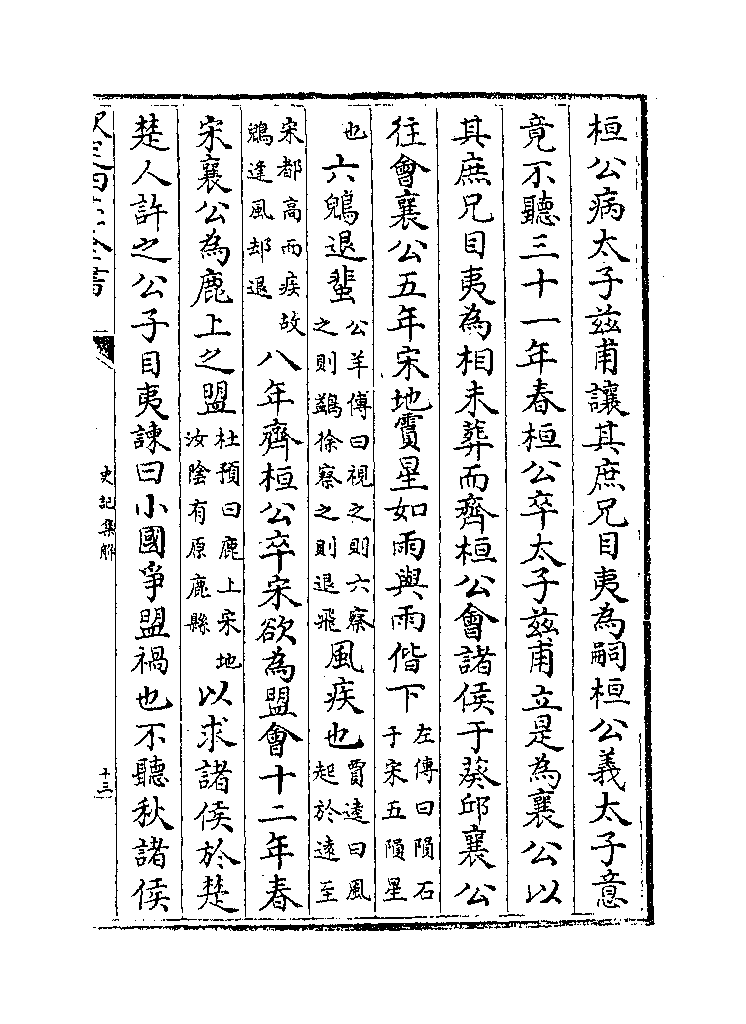 桓公病太子兹甫讓其庶兄目夷為嗣桓公義太子意
竟不聽三十一年春桓公卒太子兹甫立是為襄公以
其庶兄目夷為相未葬而齊桓公會諸侯于葵邱襄公
往會襄公五年宋地霣星如雨與雨偕下左傳曰隕石于宋五隕星
也六鶂退蜚公羊傳曰視之則六察之則鷁徐察之則退飛風疾也賈逵曰風起於遠至
宋都高而疾故鶂逢風却退八年齊桓公卒宋欲為盟會十二年春
宋襄公為鹿上之盟杜預曰鹿上宋地汝陰有原鹿縣以求諸侯於楚
楚人許之公子目夷諫曰小國爭盟禍也不聽秋諸侯
欽定四庫全書
史記集解
十三